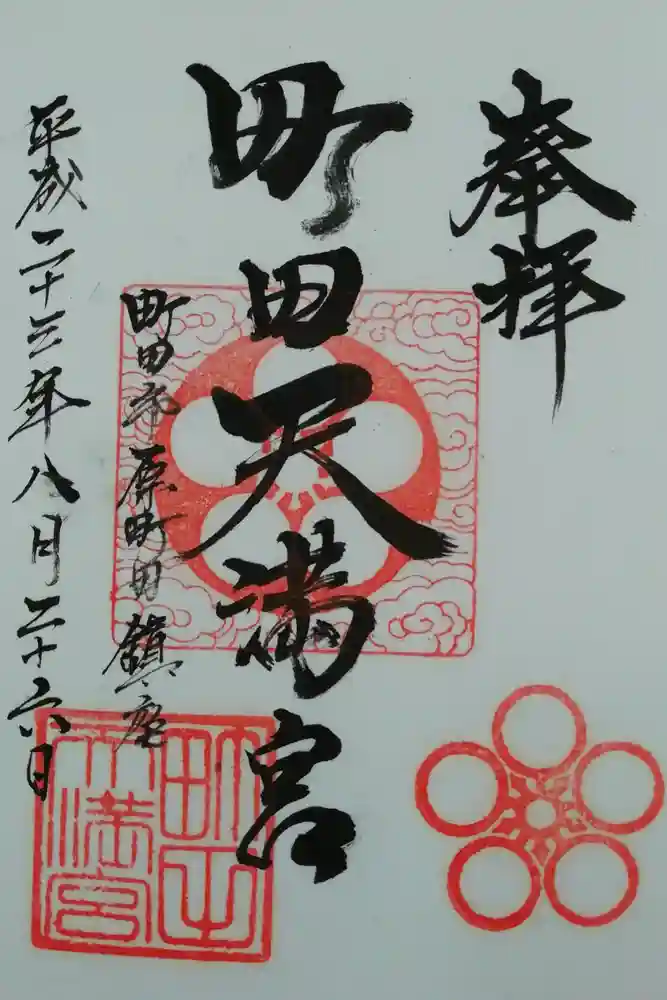 奉拝
町田天満宮
町田市原町田鎮座
平成二十三年八月二十六日
町田
天満宮